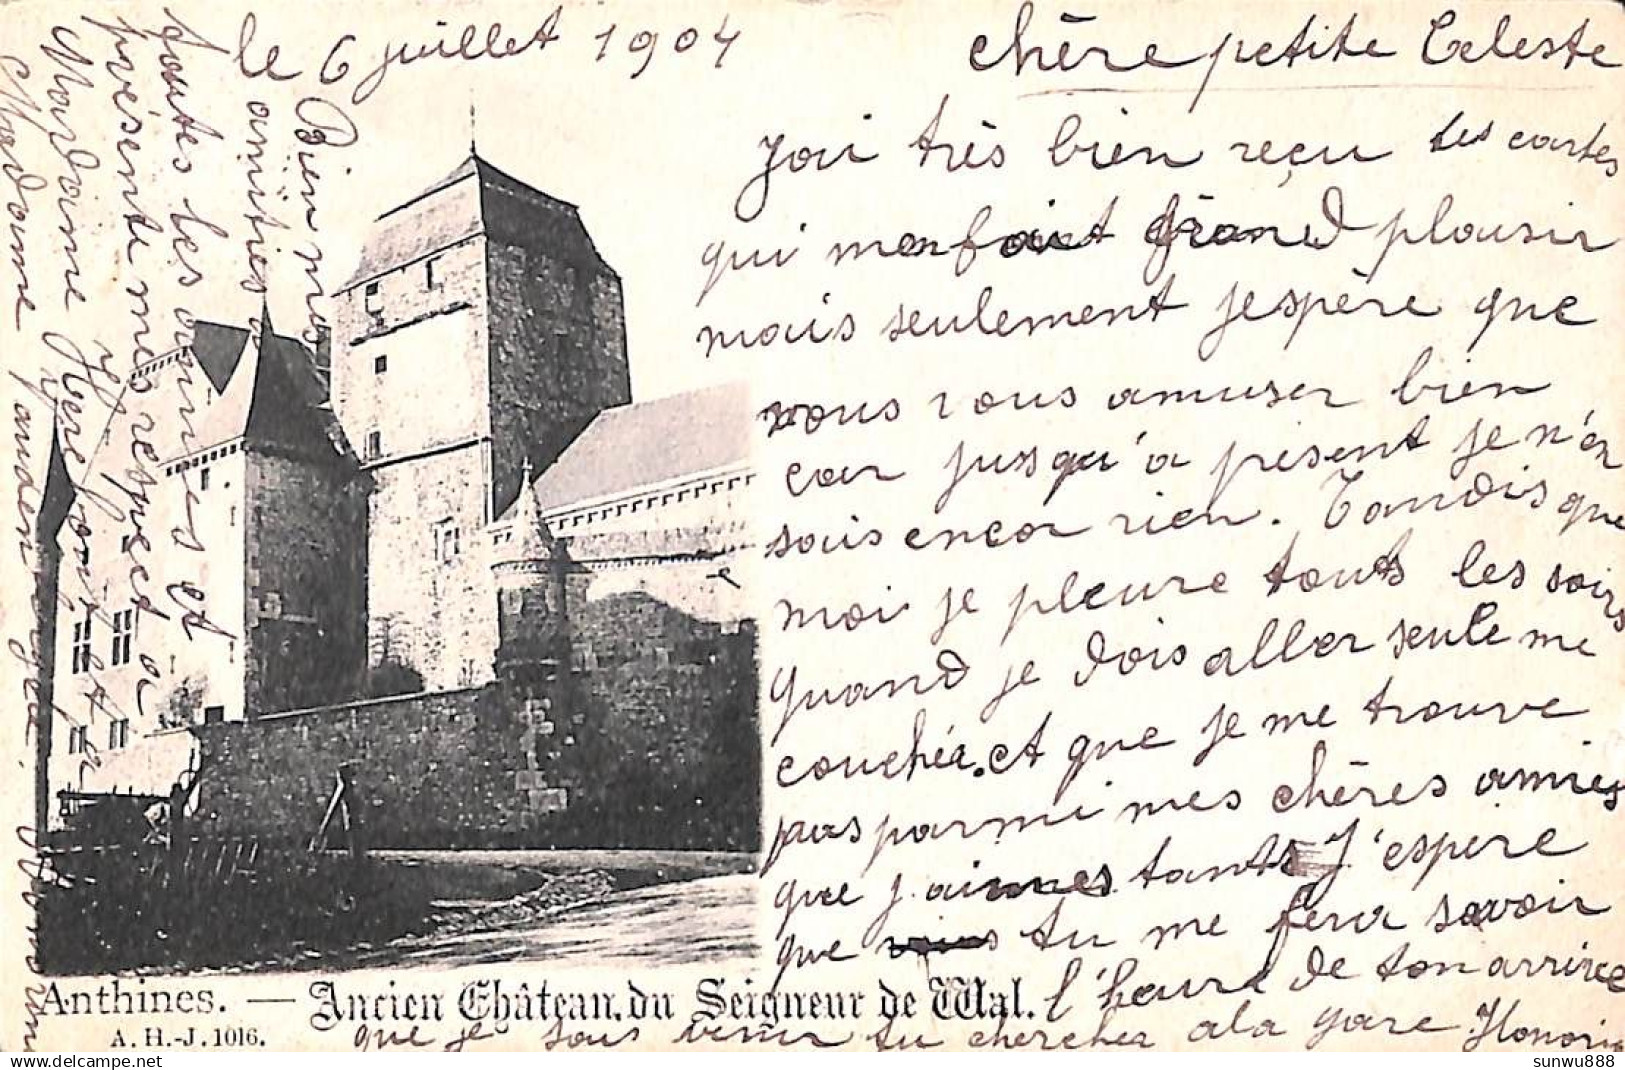 le 6 juillet 1904
chère petite Celeste
Jai très bien reçu tes cartes
qui mon fait grand plaisir
mais seulement jespère que
vous vous amuser bien
car jusqu'a présent je n'en
sais encor rien. Tandis que
moi je pleure touts les soirs
quand je dois aller seule me
couchée. et que je me trouve
pas parmi mes chères amies
que j.aimes tants J'espere
que tu me fera savoir
l'heure de ton arrivee
que je sous venir tu cherchez a la gare Honorine
Bien mes
amitiés a
toutes les amies et
présente mes respect a
Mardaine Herefont et a
Madame Vandensngée.
Anthines. — Ancien Château du Seigneur de Wal.
A. H.-J. 1016.
sunwu888